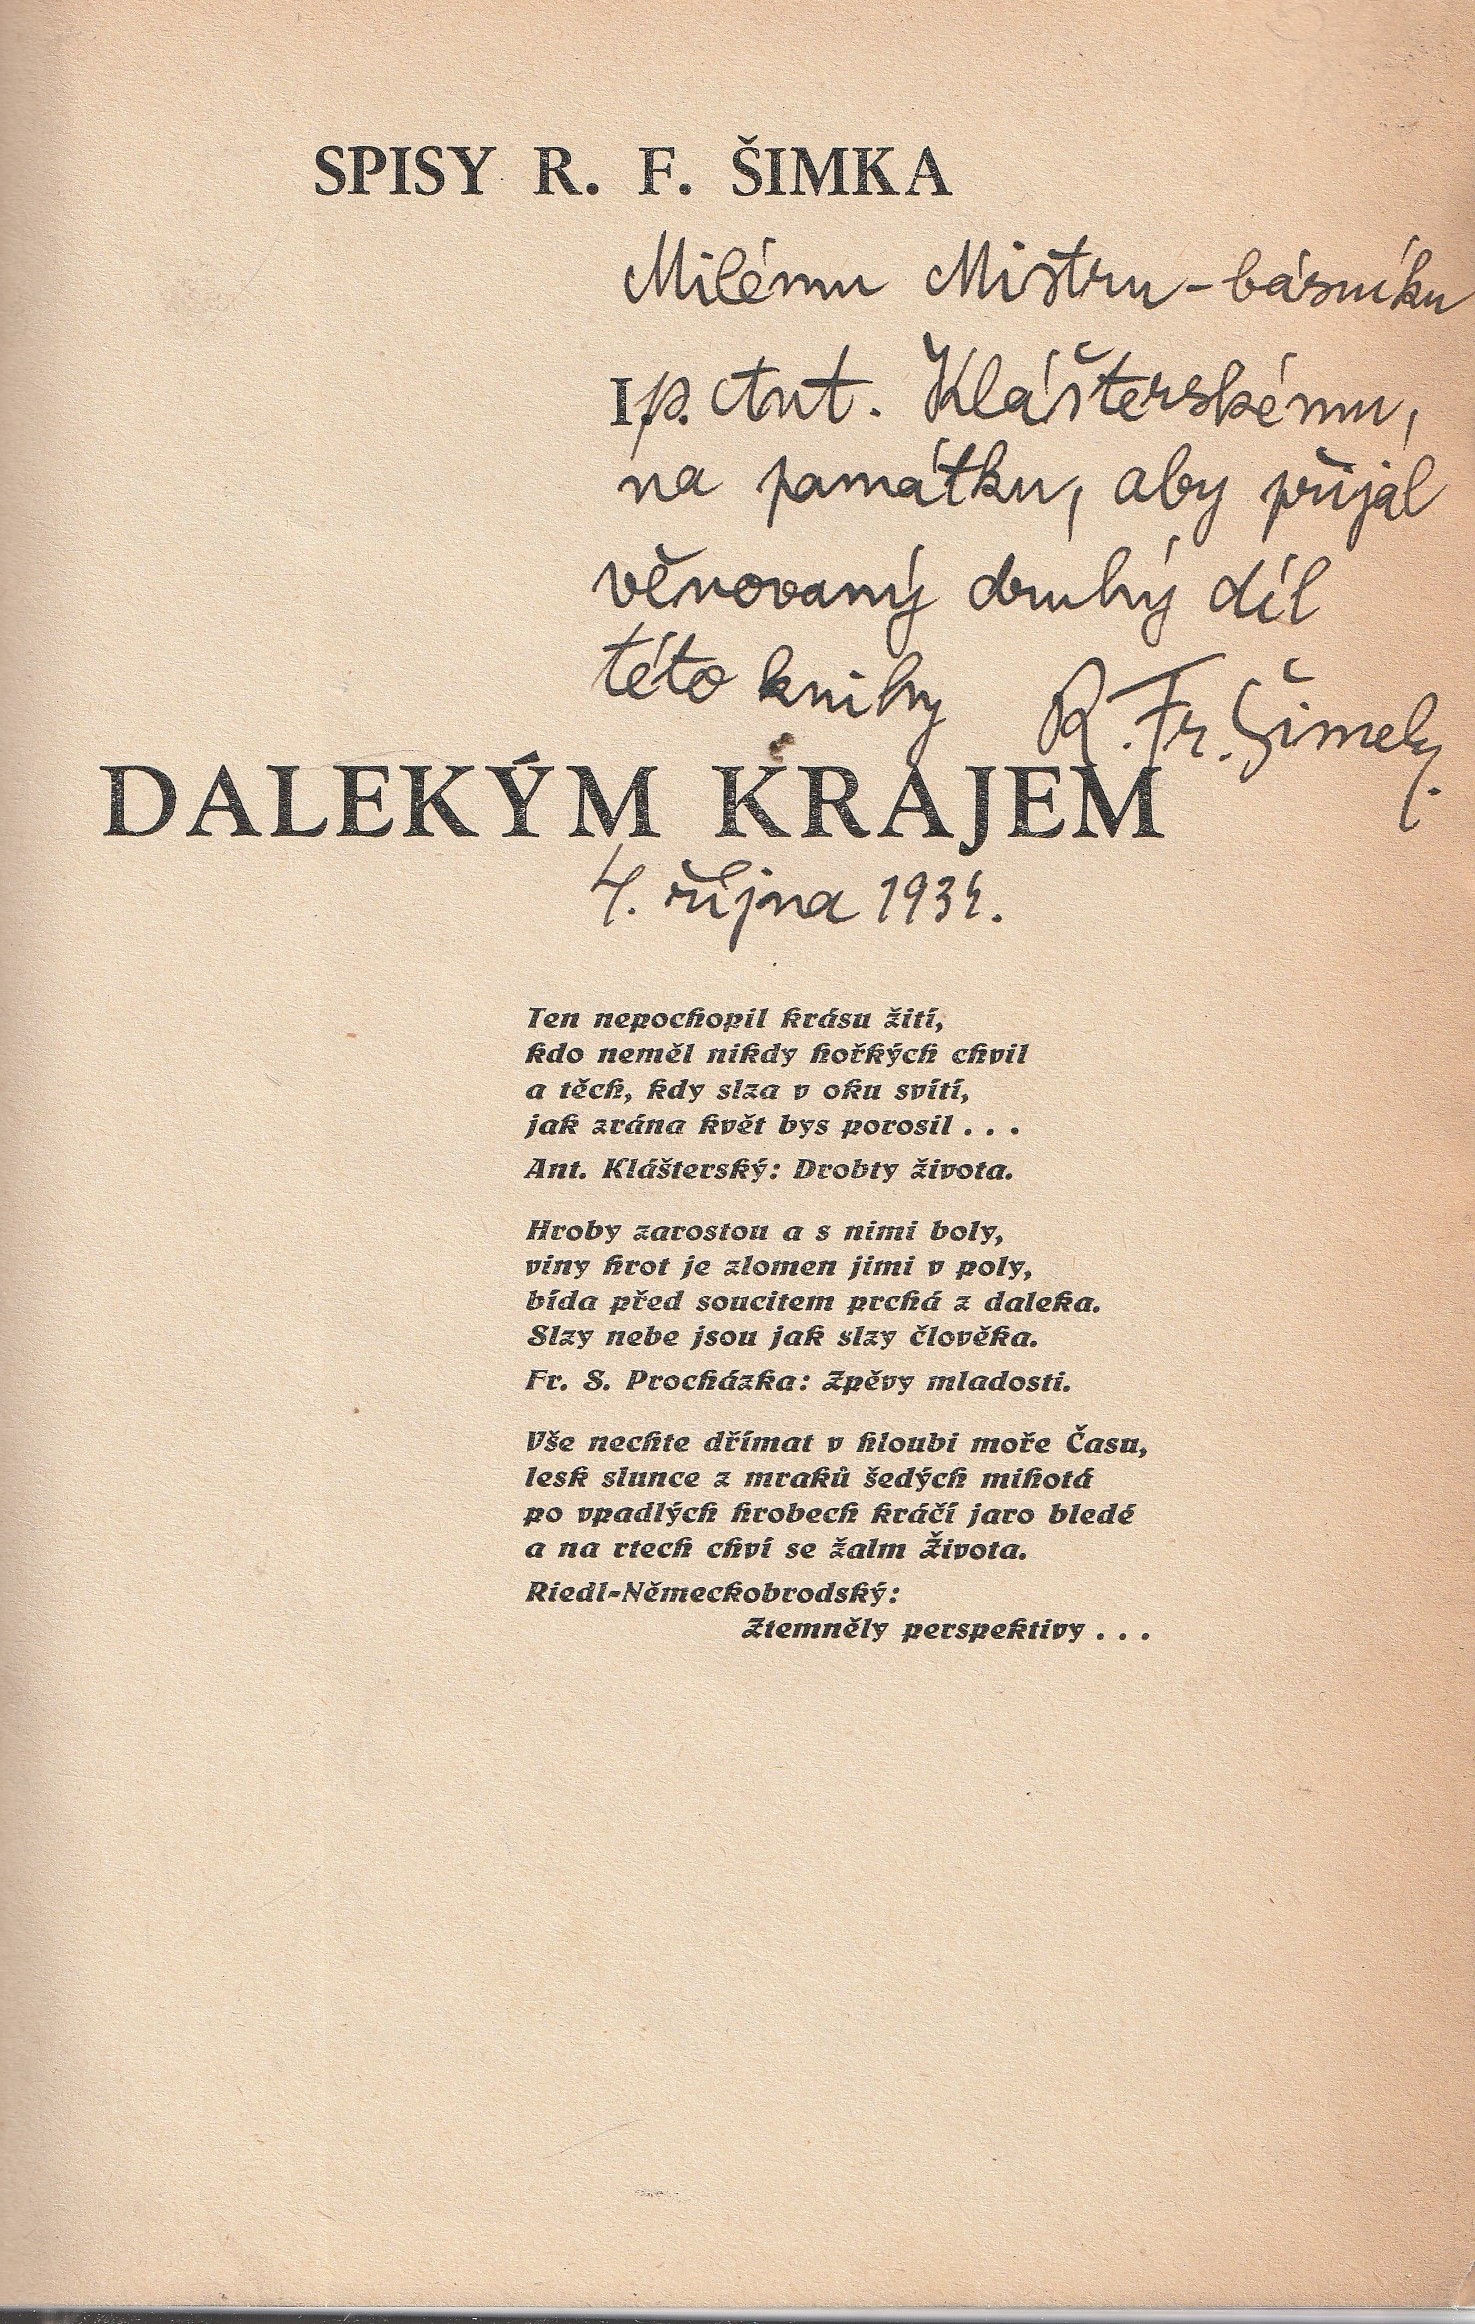 SPISY R. F. ŠIMKA
Milému Mistru-básníku
I. p. Ant. Klášterskému,
na památku, aby přijal
věnovaný druhý díl
této knihy R. Fr. Šimek.
DALEKÝM KRAJEM
4. října 1934.
Ten nepochopil krásu žití,
kdo neměl nikdy hořkých chvil
a těch, kdy slza v oku svítí,
jak zrána květ bys porosil . . .
Ant. Klášterský: Drobty života.
Hroby zarostou a s nimi boly,
viny hrot je zlomen jimi v poly,
bída před soucitem prchá z daleka.
Slzy nebe jsou jak slzy člověka.
Fr. S. Procházka: Zpěvy mladosti.
Vše nechte dřímat v hloubi moře Času,
lesk slunce z mraků šedých mihotá
po vpadlých hrobech kráčí jaro bledé
a na rtech chví se žalm Života.
Riedl-Německobrodský:
Ztemněly perspektivy . . .